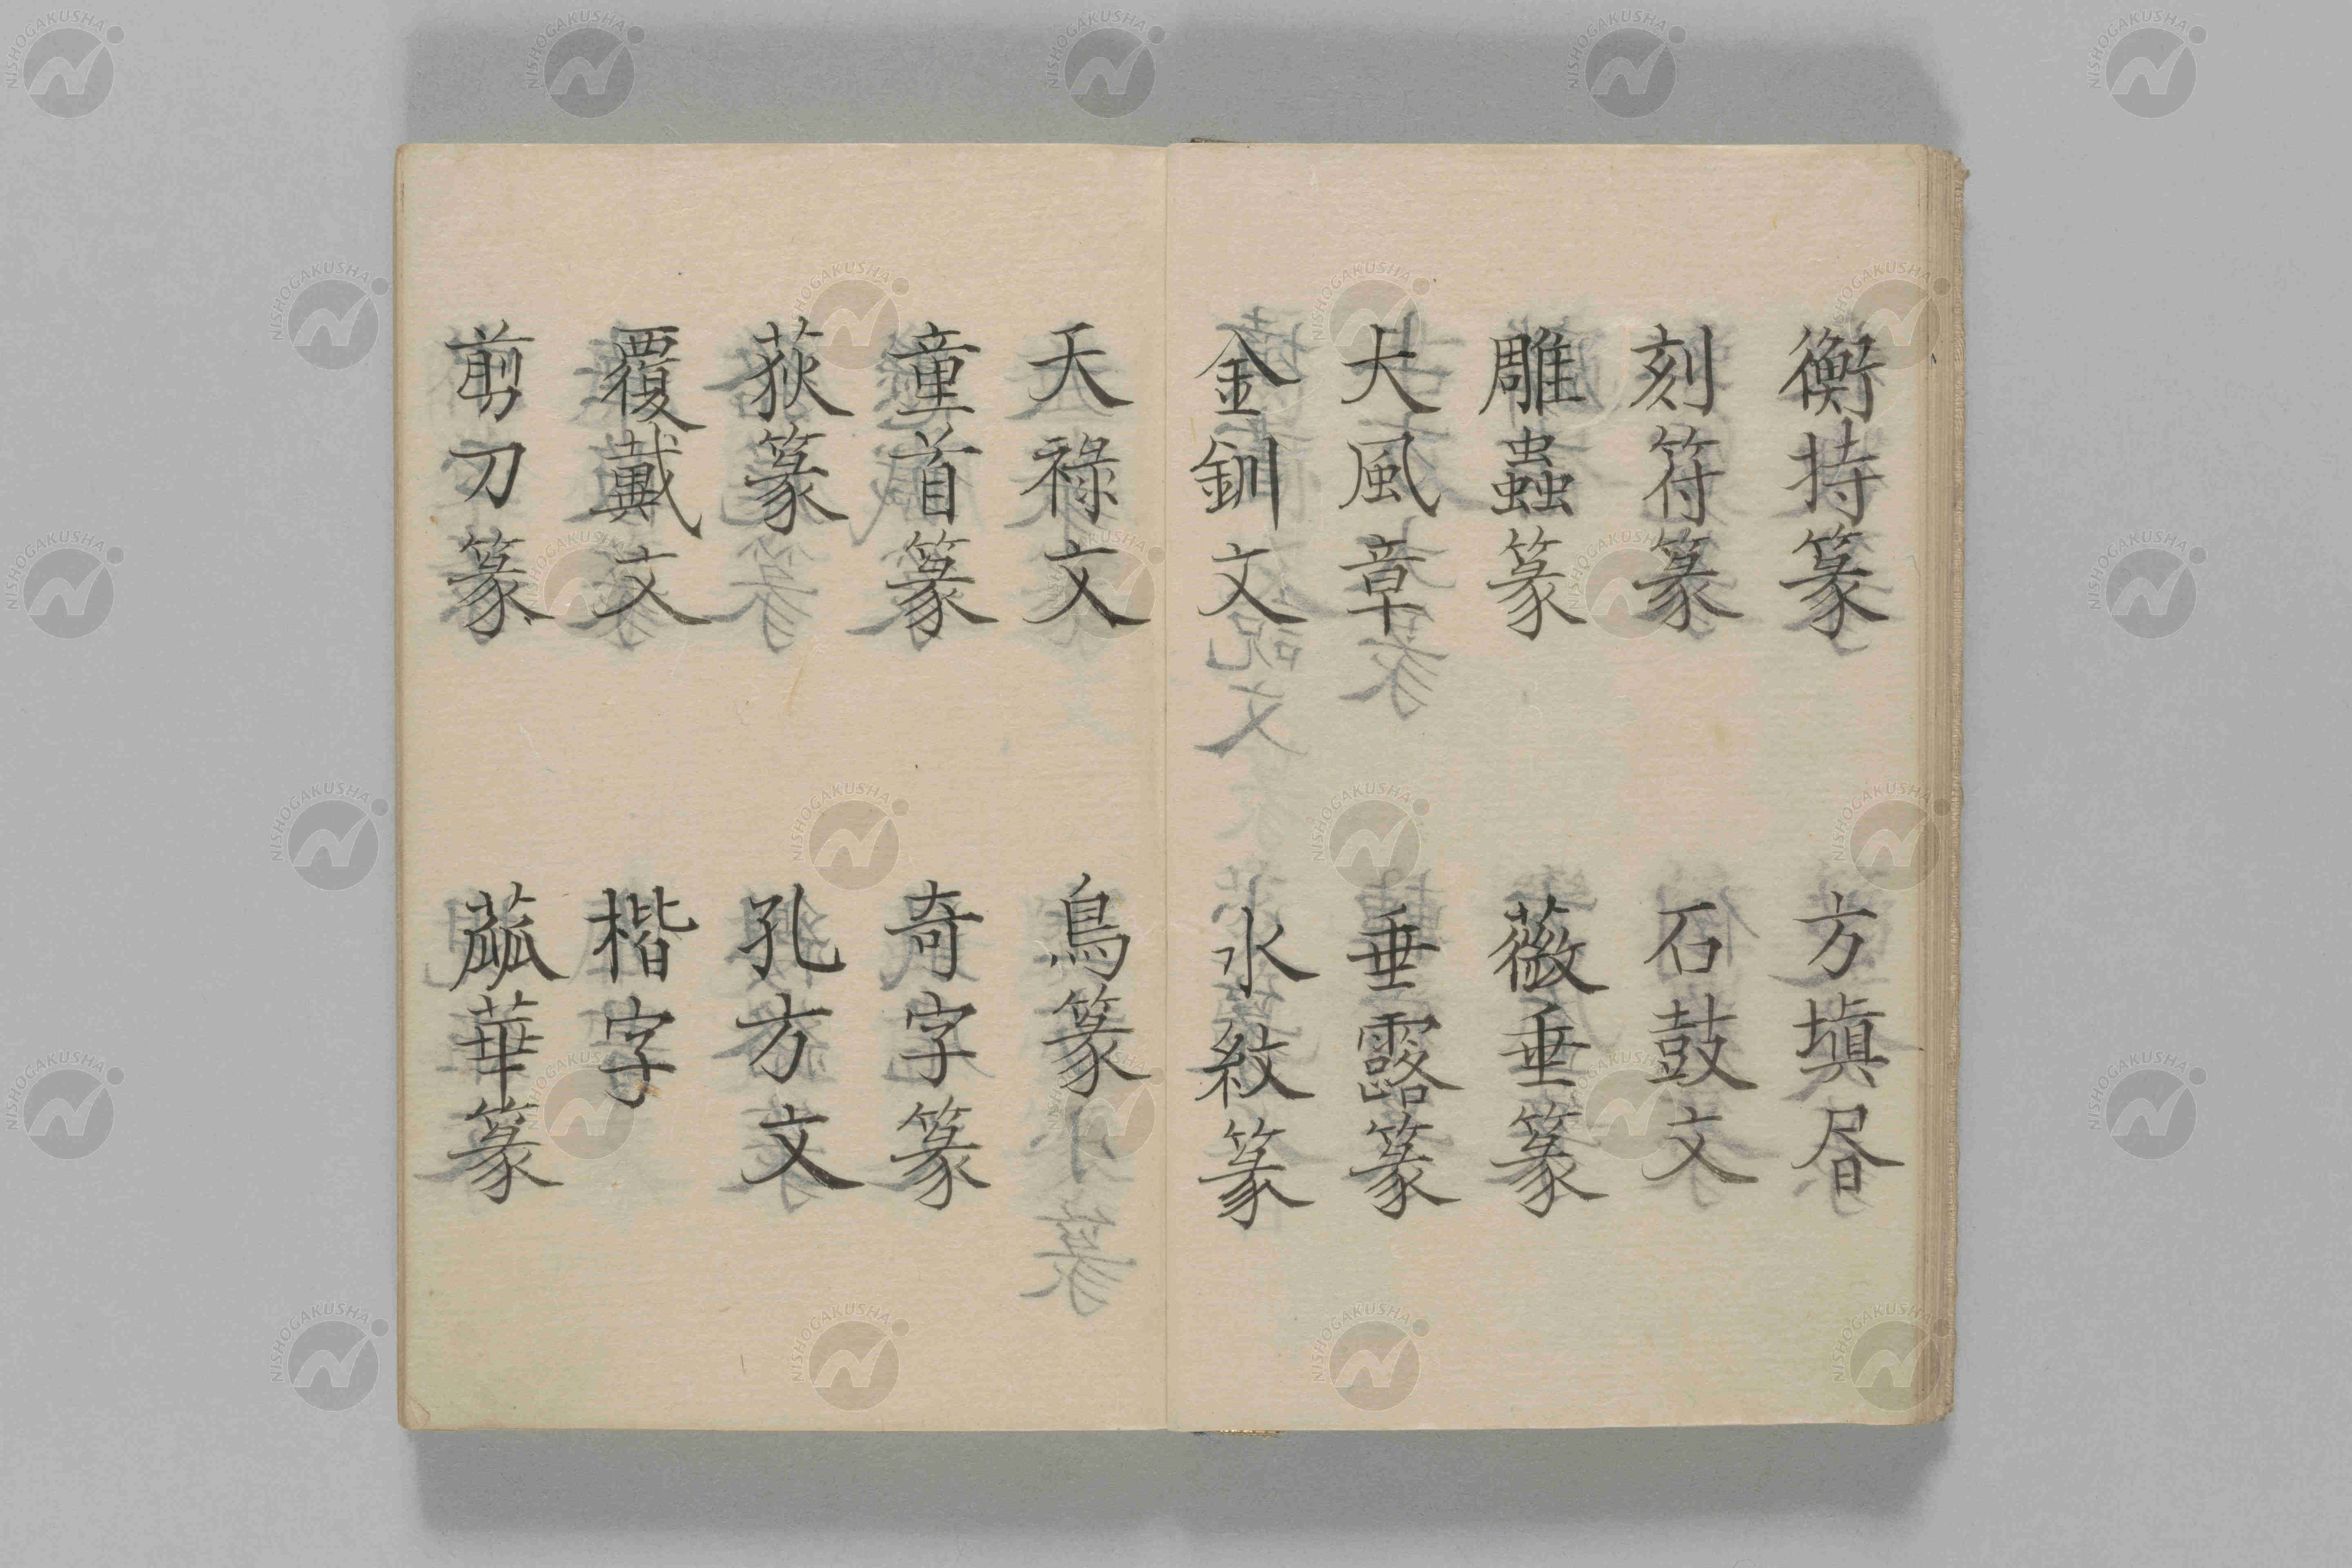 衡持篆 方塡㫺
刻符篆 石鼓文
雕蟲篆 薇垂篆
大風章 垂露篆
金釧文 水紋篆
天祿文 鳥篆
童首篆 奇字篆
荻篆 孔方文
覆戴文 楷字
剪刀篆 蓏華篆
NISHOGAKUSHA